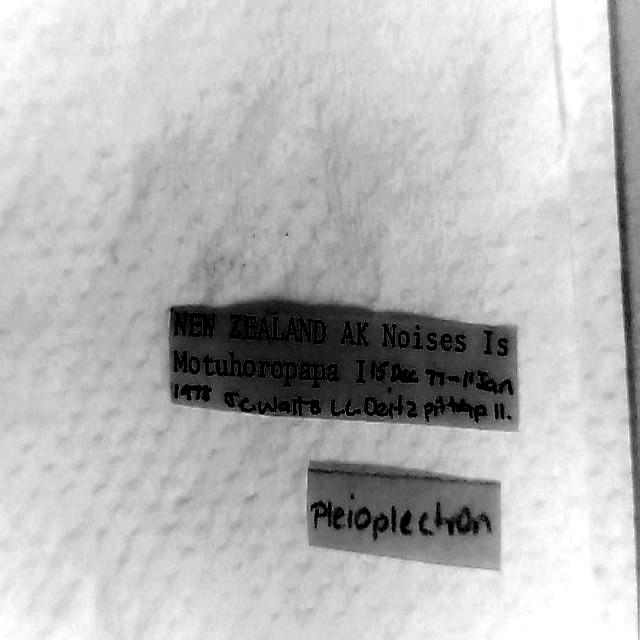 NEW ZEALAND AK Noises Is
Motuhoropapa I 15 Dec 77-11 Jan
1978 pittrap 11.
Pleioplectron